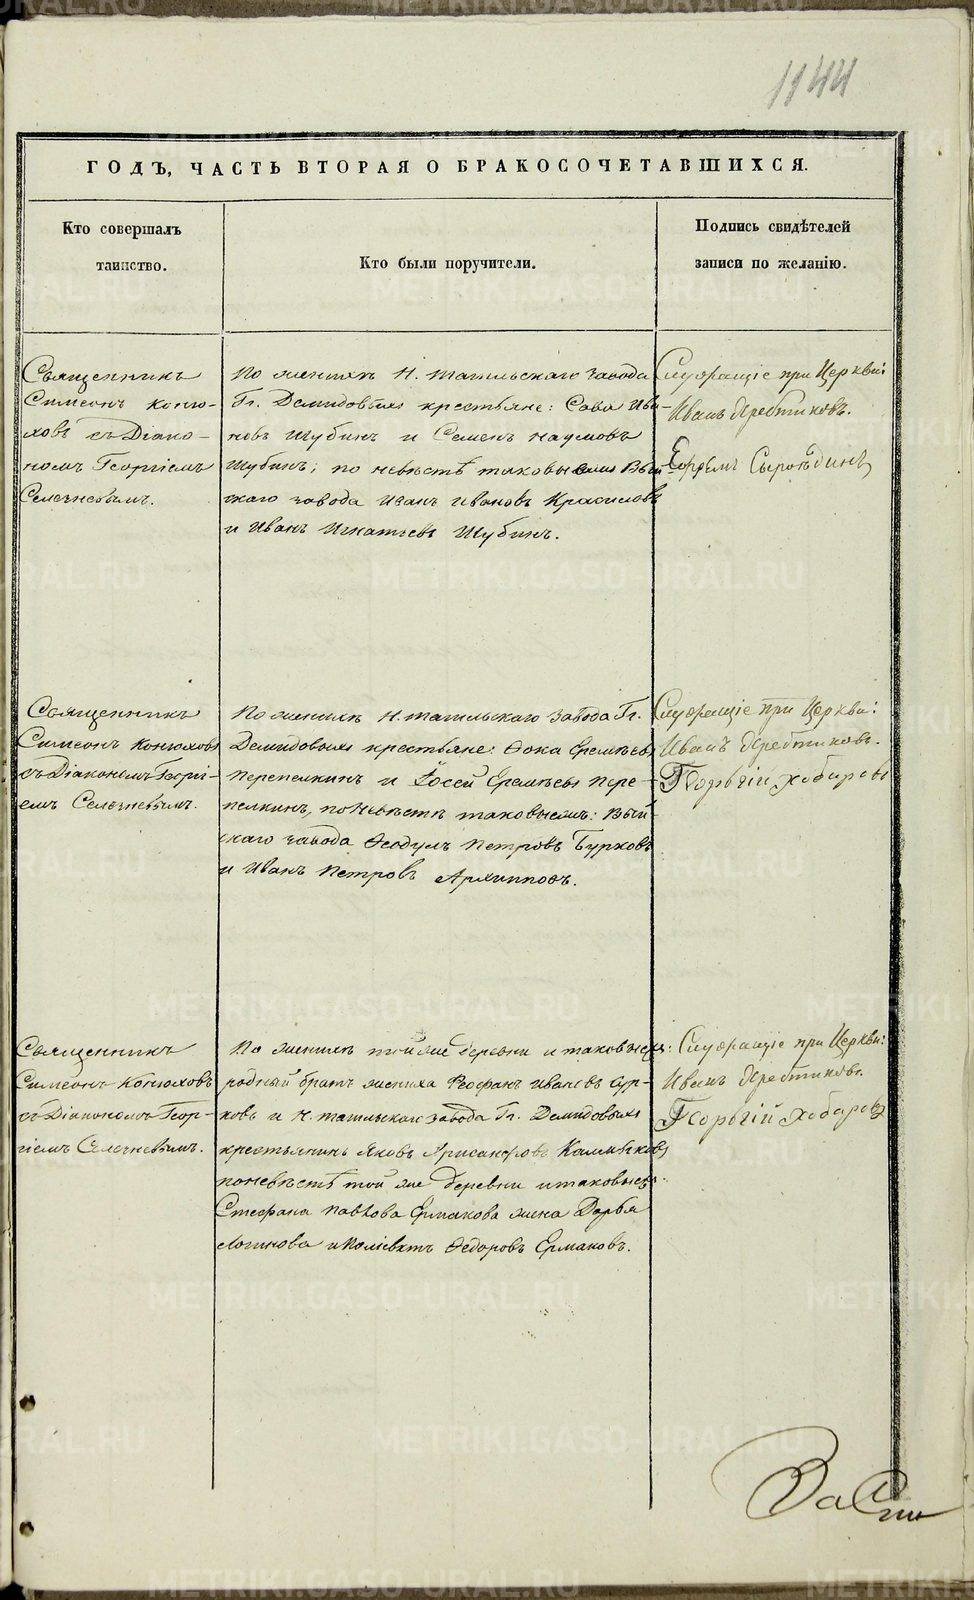 1144
ГОДЪ, ЧАСТЬ ВТОРАЯ О БРАКОСОЧЕТАВШИХСЯ.
Кто совершалъ
таинство.
Кто были поручители.
Подпись свидѣтелей
записи по желанію.
Священникъ
Симеонъ Коню-
ховъ съ Діако-
номъ Георгіемъ
Селезневымъ.
По женихѣ Н. Тагильскаго завода
Гг. Демидовыхъ крестьяне: Сава Ива-
новъ Шубинъ и Семенъ Наумовъ
Шубинъ; по невѣстѣ таковыежъ Вый
скаго завода Иванъ Ивановъ Красиловъ
и Иванъ Игнатьевъ Шубинъ.
Служащіе при Церкви:
Иванъ
Ефремъ Сыропѣдинъ
Священникъ
Симеонъ Конюховъ
съ Діакономъ Георгі-
емъ Селезневымъ.
По женихѣ Н. Тагильскаго завода Гг.
Демидовыхъ крестьяне: Фока Еремѣевъ
Перепелкинъ и Еремѣевъ Пере-
пелкинъ, по невѣстѣ таковыежъ: Вый-
скаго завода Ѳеодулъ Петровъ Бурковъ
и Иванъ Петровъ Архиповъ.
Служащіе при Церкви:
Иванъ
Георгій Хобаровъ
Священникъ
Симеонъ Конюховъ
съ Діакономъ Геор-
гіемъ Селезневымъ.
По женихѣ той же деревни и таковыежъ:
родный братъ жениха Феофанъ Ивановъ
и Н. Тагильскаго завода Гг. Демидовыхъ
крестьянинъ Яковъ Калмыковъ
по невѣстѣ той же деревни и таковыежъ:
Стефана Павлова Ермакова жена Дарья
Логинова и Поліевктъ Ѳедоровъ Ермаковъ.
Служащіе при Церкви:
Иванъ
Георгій Хобаровъ
METRIKI.GASO-URAL.RU